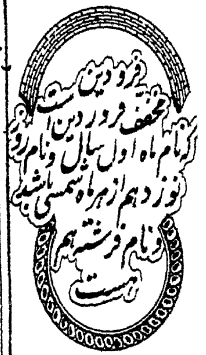 فرودین
مخفف فروردین است
که نام ماه اول سال و نام روز
نوزدهم از هر ماه شمسی باشد
و نام فرشته هم
هست